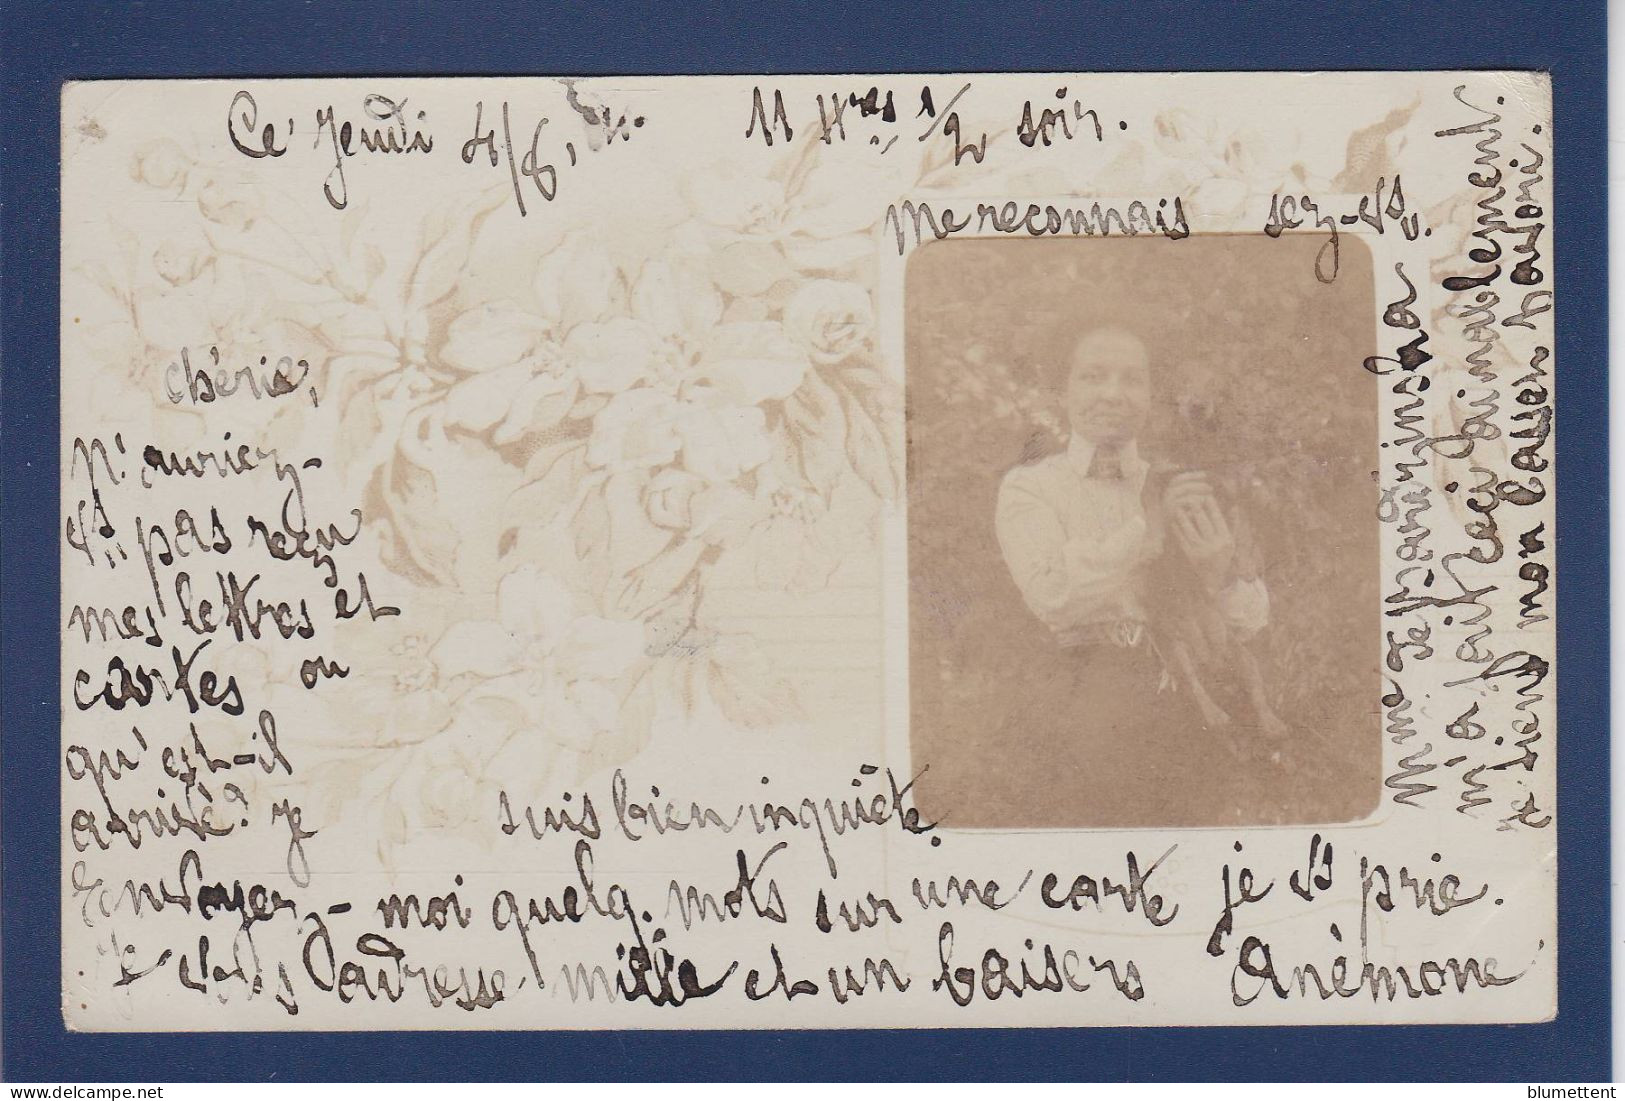 Ce Jeudi 4/8, 11 Hres 1/2 soir.
me reconnais sez-vs.
Chérie,
N'auriez-
vs pas reçu
mes lettres et
cartes ou
qu'est-il
arrivé? Je suis bien inquiète.
Envoyez-moi quelq. mots sur une carte je vs prie.
Je vous adresse mille et un baisers Anémone
Mme
m'a fait ceci aimablement.
je tiens mon favori.
blumettent